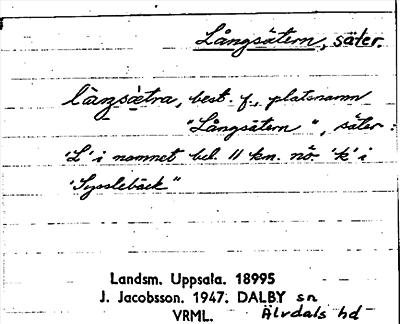 Långsätern, säter.
långsætra, best. f., platsnamn
"Långsätern", säter:
"L" i namnet bel. 11 km. nö. "k" i
"Sysslebäck"
Landsm. Uppsala. 18995
J. Jacobsson. 1947. DALBY sn
VRML. Älvdals hd